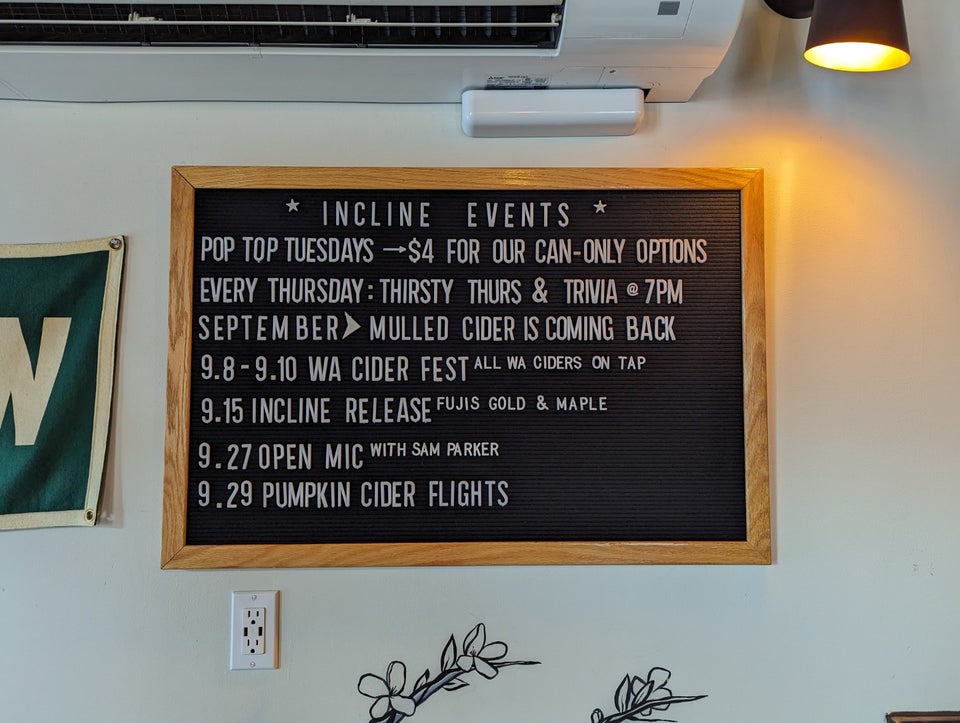 ★ INCLINE EVENTS ★
POP TOP TUESDAYS →$4 FOR OUR CAN-ONLY OPTIONS
EVERY THURSDAY: THIRSTY THURS & TRIVIA @ 7PM
SEPTEMBER➤ MULLED CIDER IS COMING BACK
9.8-9.10 WA CIDER FEST ALL WA CIDERS ON TAP
9.15 INCLINE RELEASE FUJIS GOLD & MAPLE
9.27 OPEN MIC WITH SAM PARKER
9.29 PUMPKIN CIDER FLIGHTS
W